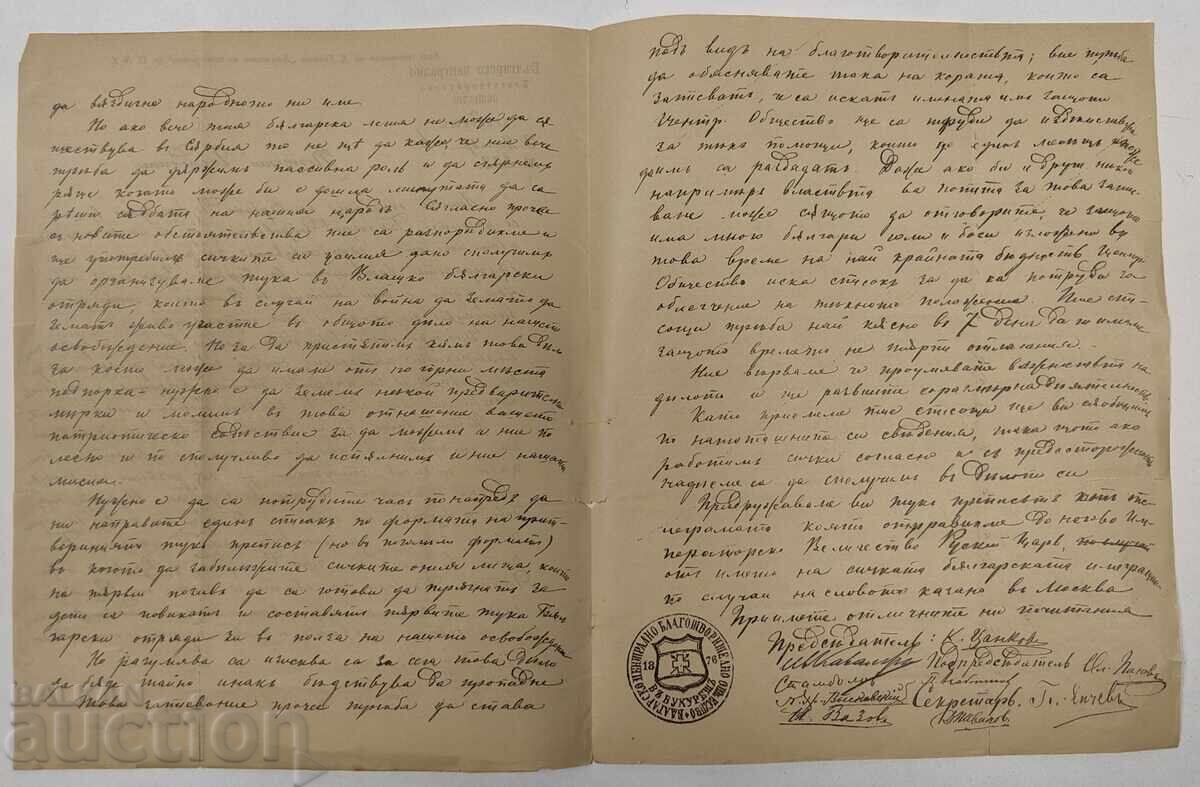 да въздигне народното ни име.
Но ако вече тая българска легия не може да съ-
ществува в Сърбия то не щѫ да кажа че ние вече
трѣба да държимъ пассивна роль и да сгърнемъ
рѫце когато може би е дошла минутата да са
рѣши сѫдбата на нашия народъ. Съгласно проче
съ новите обстоятелства ние са разпоредихме и
ще употребимъ сичките си усилия дано сполучимъ
да организуваме тука въ Влашко български
отряди, които въ случай на война да земат да
зематъ живо участие въ общото дѣло на нашето
освобождение. Но за да пристѫпимъ къмъ това дѣло
за което може да имаме отъ по горни мѣста
подпорка - нужно е да земемъ някои предварителни
мѣрки и молимъ въ това отношение вашето
патриотическо съдѣйствие за да можемъ и ний по
лесно и по сполучливо да испълнимъ и ние нашата
мисия.
Нужно е да са потрудите часъ по напредъ да
ни направите единъ списакъ по формата на прит-
воренният тука препис (но въ по голямъ форматъ)
въ когото да забѣлѣжите сичките ония лица, които
на първи позивъ да са готови да тръгнатъ за
дето са повикатъ и составятъ първите тука Бъл-
гарски отряди за въ полза на нашето освобождение
Но разумява са изисква са за сега това дѣло
да бѫде тайно инакъ бѣдствува да пропадне
Това записвание проче трѣба да става
подъ видъ на благотворителността; вие трѣба
да обяснявате тъка на хората, които са
записватъ, че са искатъ имената имъ защото
Центр. Общество ще са труди да издѣйствува
за тѣхъ помощи, които до единъ месецъ може
да имъ са раздадатъ. Даже ако би и други някой
напримѣръ властьта ва попита за това запис-
ване може сѫщото да отговорите, че защото
има много българи голи и боси изложени въ
това време на най крайната бѣдность Центр.
Общество иска списокъ за да са потруди за
облегчение на тѣхното положение. Тие спи-
соци трѣба най кѫсно въ 7 деня да ги имаме
защото времето не търпи отлагание.
Ние вѣрваме че проумявате важностьта на
дѣлото и ще развиете соразмѣрна дѣятелность
Като приемеме тие списоци ще ви сѫобщимъ
по нататашните си сведения, така щото ако
работимъ сички согласно и съ предосторожность
надѣеме са да сполучимъ въ дѣлото си
Придружаваме ви тука преписътъ отъ те-
леграмата която отправихме до негово Им-
ператорско Величество Руский Царъ,
отъ името на сичката българската имиграция
по случаи на словото казано въ Москва
Приимете отличните ни почитания
Председатель: К. Цанковъ
Подпредседатель Ол. Пановъ
Секретаръ: Гл. Янчевъ
Ив. Вазовъ
БЪЛГАРСКО ЦЕНТРАЛНО БЛАГОТВОРИТЕЛНО ОБЩЕСТВО
ВЪ БУКУРЕЩЪ
1876
Българско централно
благотворително
общество
BALKAN
auction